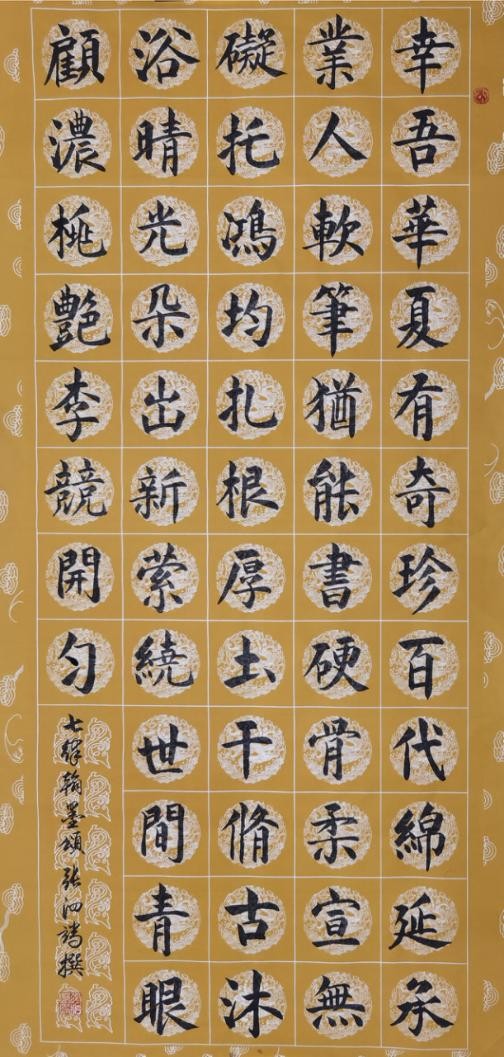 幸吾華夏有奇珍百代綿延承
業人軟筆猶能書硬骨柔宣無
礙托鴻均扎根厚土干脩古沐
浴晴光朵出新萦繞世間青眼
顧濃桃艷李競開勻
七律翰墨頌张泗撰